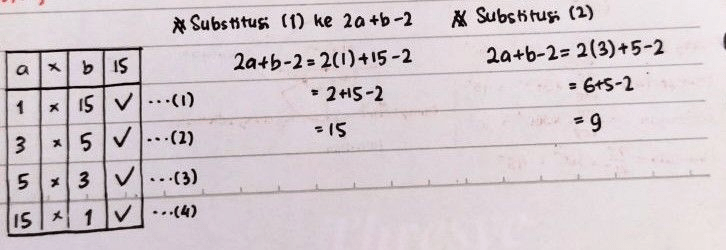 * Substitusi (1) ke 2a+b-2
2a+b-2 = 2(1)+15-2
= 2+15-2
= 15
* Substitusi (2)
2a+b-2 = 2(3)+5-2
= 6+5-2
= 9
a x b 15
1 x 15 ✓ ...(1)
3 x 5 ✓ ...(2)
5 x 3 ✓ ...(3)
15 x 1 ✓ ...(4)